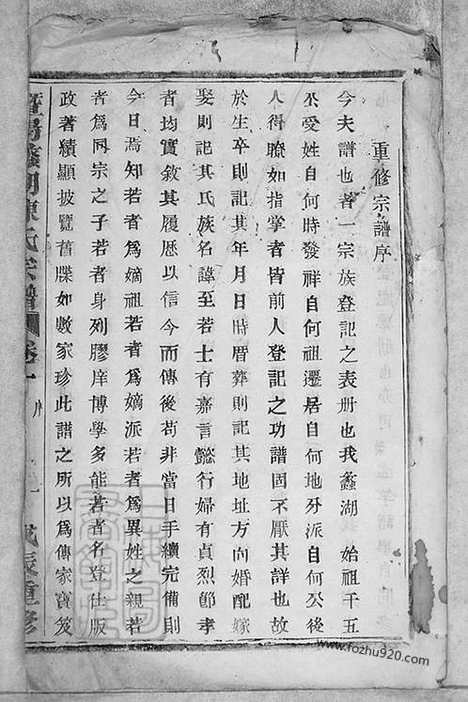 重修宗譜序
今夫譜也者一宗族登記之表册也我蠡湖 始祖千五
公受姓自何時發祥自何祖遷居自何地分派自何公後
人得瞭如指掌者皆前人登記之功譜固不厭其詳也故
於生卒則記其年月日時厝葬則記其地址方向婚配嫁
娶則記其氏族名諱至若士有嘉言懿行婦有貞烈節孝
者均實敘其履歷以信今而傳後苟非當日手續完備則
今日焉知若者爲嫡祖若者爲嫡派若者爲異姓之親若
者爲同宗之子若者身列膠庠博學多能若者名登仕版
政著績顯披覽舊牒如數家珍此譜之所以爲傳家寶笈
暨陽蠡湖陳氏宗譜 卷一 序 一 戊辰重修
www.fozhu920.com